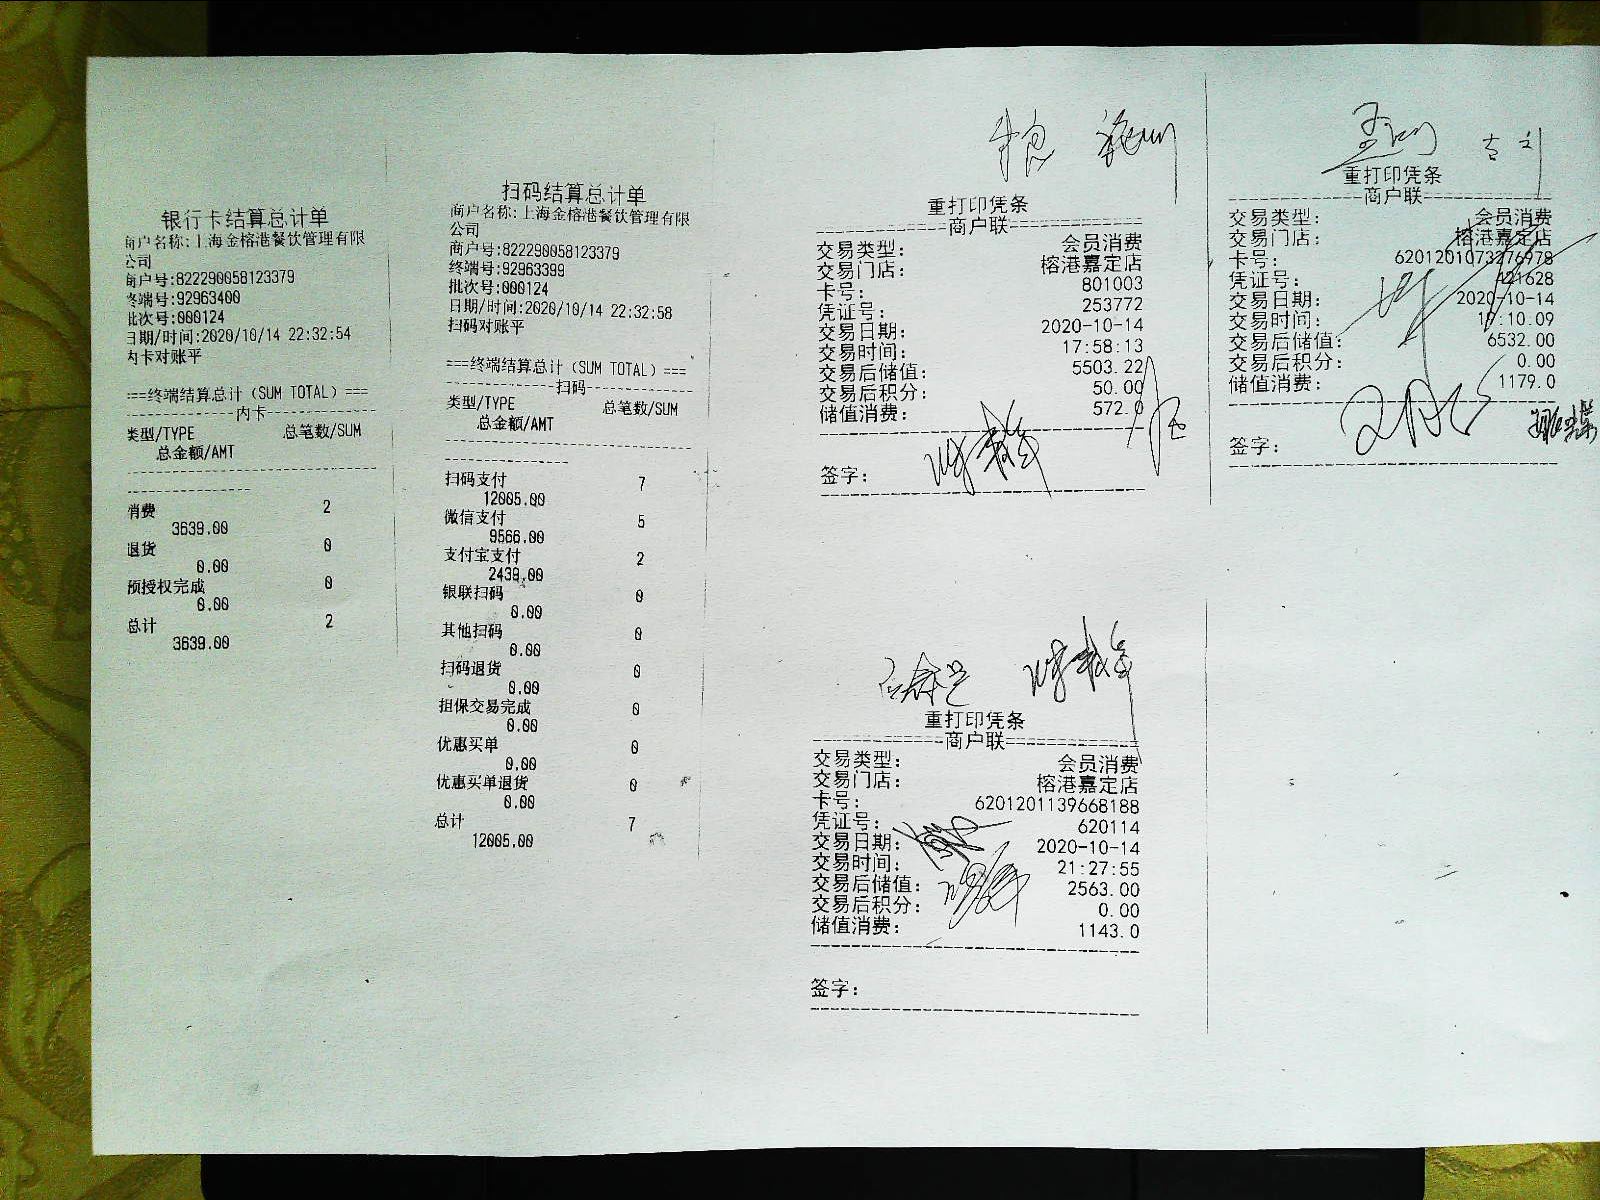 银行卡结算总计单
商户名称:上海金榕港餐饮管理有限
公司
商户号:822290058123379
终端号:92963400
批次号:000124
日期/时间:2020/10/14 22:32:54
内卡对账平
===终端结算总计(SUM TOTAL)===
----------------内卡----------------
类型/TYPE 总笔数/SUM
总金额/AMT
消费 2
3639.00
退货 0
0.00
预授权完成 0
0.00
总计 2
3639.00
扫码结算总计单
商户名称:上海金榕港餐饮管理有限
公司
商户号:822290058123379
终端号:92963399
批次号:000124
日期/时间:2020/10/14 22:32:58
扫码对账平
===终端结算总计(SUM TOTAL)===
----------------扫码----------------
类型/TYPE 总笔数/SUM
总金额/AMT
扫码支付 7
12005.00
微信支付 5
9566.00
支付宝支付 2
2439.00
银联扫码 0
0.00
其他扫码 0
0.00
扫码退货 0
0.00
担保交易完成 0
0.00
优惠买单 0
0.00
优惠买单退货 0
0.00
总计 7
12005.00
重打印凭条
商户联
交易类型: 会员消费
交易门店: 榕港嘉定店
卡号: 801003
凭证号: 253772
交易日期: 2020-10-14
交易时间: 17:58:13
交易后储值: 5503.22
交易后积分: 50.00
储值消费: 572.0
签字:
重打印凭条
商户联
交易类型: 会员消费
交易门店: 榕港嘉定店
卡号: 6201201073276978
凭证号: 421628
交易日期: 2020-10-14
交易时间: :10.09
交易后储值: 6532.00
交易后积分: 0.00
储值消费: 1179.0
签字:
重打印凭条
商户联
交易类型: 会员消费
交易门店: 榕港嘉定店
卡号: 6201201139668188
凭证号: 620114
交易日期: 2020-10-14
交易时间: 21:27:55
交易后储值: 2563.00
交易后积分: 0.00
储值消费: 1143.0
签字: